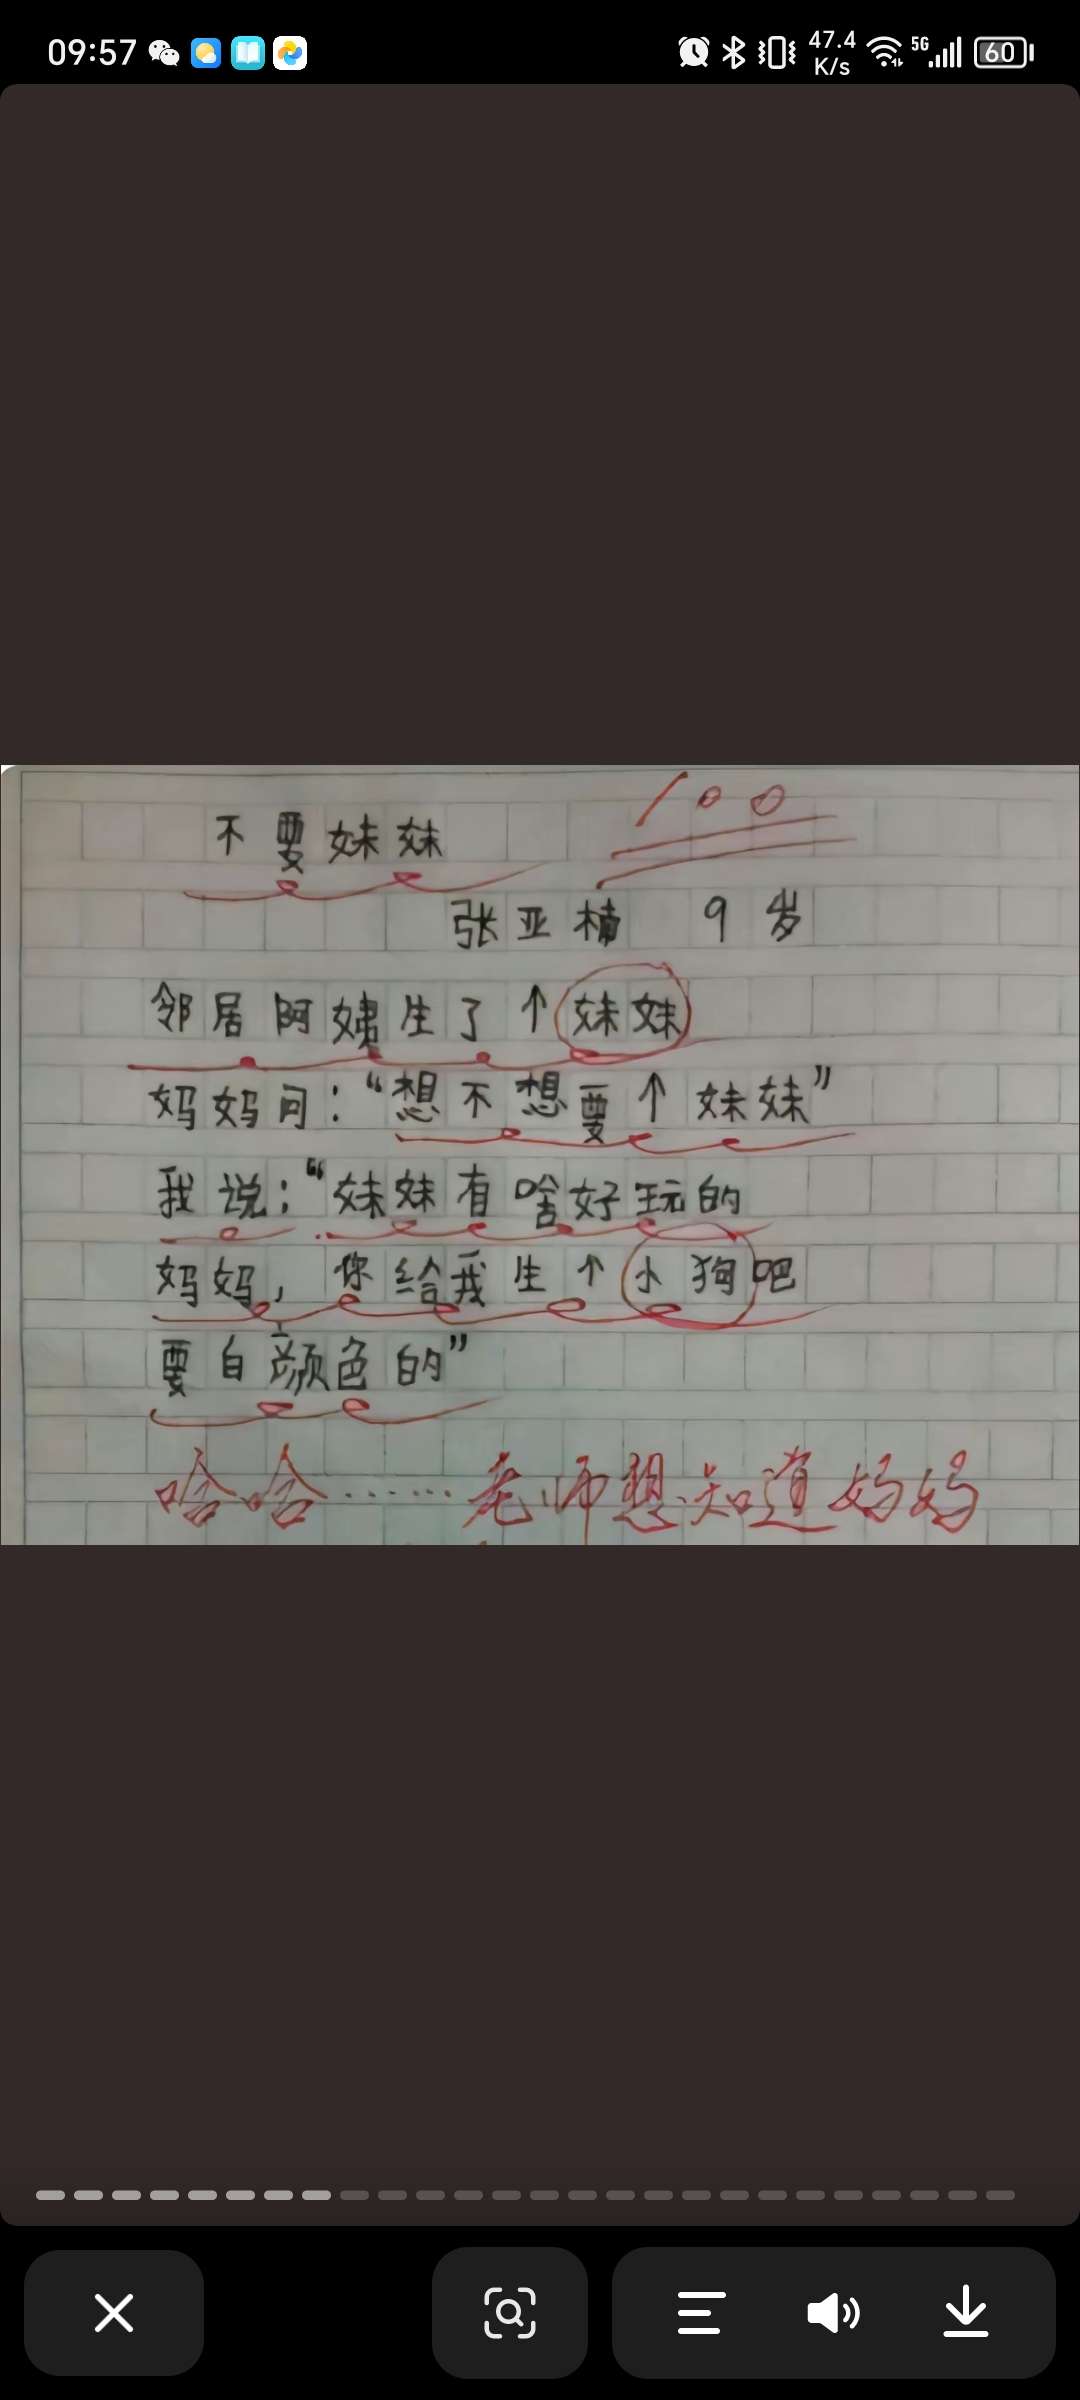 09:57
47.4 K/s
5G
60
100
不要妹妹
张亚楠 9岁
邻居阿姨生了个妹妹
妈妈问：“想不想要个妹妹”
我说：“妹妹有啥好玩的
妈妈，你给我生个小狗吧
要白颜色的”
哈哈……老师想知道妈妈